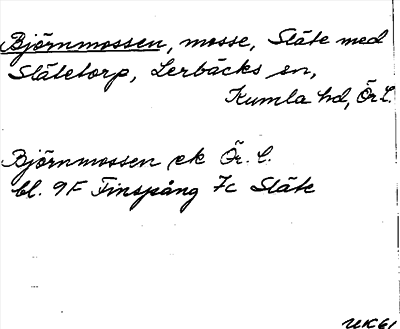 Björnmossen, mosse, Släte med
Slätetorp, Lerbäcks sn,
Kumla hd, Ör. l.
Björnmossen ek Ör. l.
bl. 9F Finspång 7c Släte
UK61